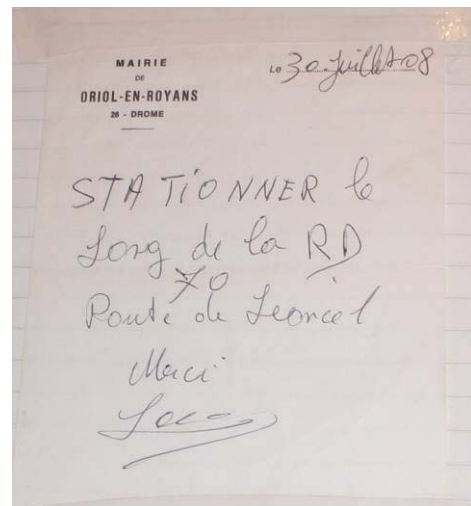 MAIRIE
DE
ORIOL-EN-ROYANS
26 - DROME
LE 30 Juillet 08
STATIONNER le
Long de la RD
70
Route de Leoncel
Merci